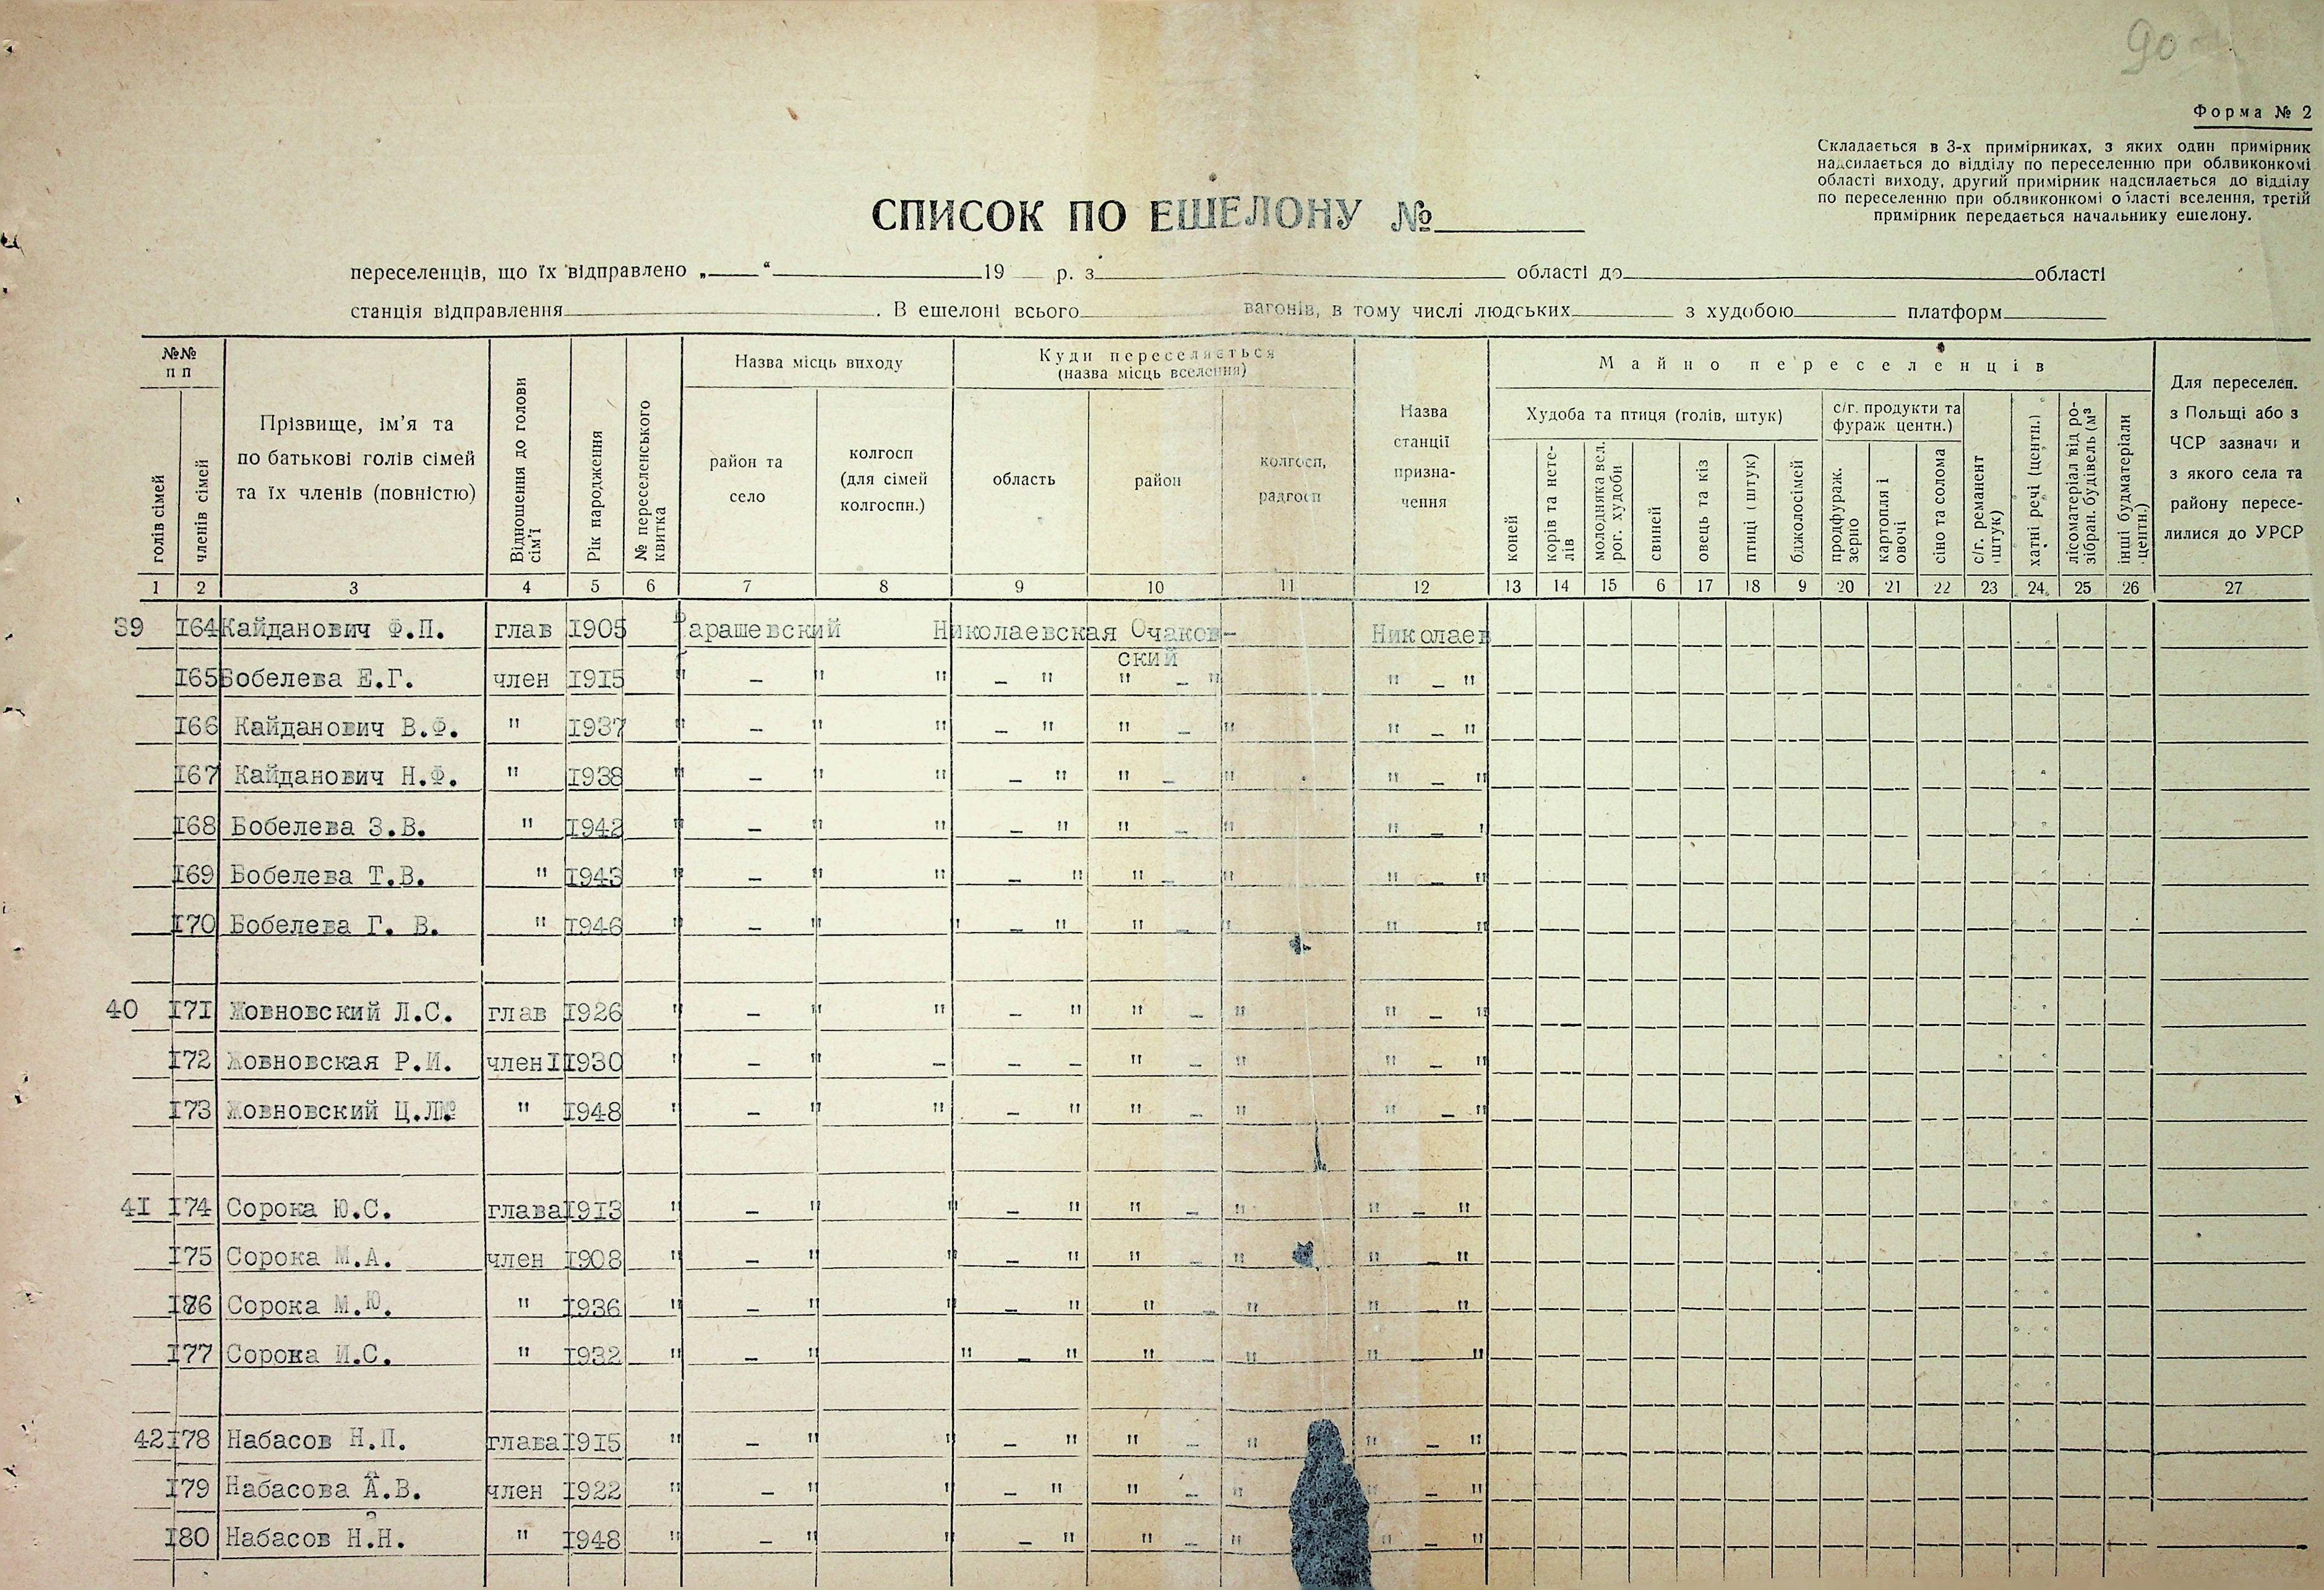 90
Форма № 2
Складається в 3-х примірниках, з яких один примірник
надсилається до відділу по переселенню при облвиконкомі
області виходу, другий примірник надсилається до відділу
по переселенню при облвиконкомі області вселення, третій
примірник передається начальнику ешелону.
СПИСОК ПО ЕШЕЛОНУ №
переселенців, що їх відправлено „ “ 19 р. з області до області
станція відправлення . В ешелоні всього вагонів, в тому числі людських з худобою платформ
№№ п п
голів сімей
членів сімей
Прізвище, ім'я та
по батькові голів сімей
та їх членів (повністю)
Відношення до голови
сім'ї
Рік народження
№ переселенського
квитка
Назва місць виходу
район та
село
колгосп
(для сімей
колгоспн.)
Куди переселяється
(назва місць вселення)
область
район
колгосп,
радгосп
Назва
станції
призна-
чення
Майно переселенців
Худоба та птиця (голів, штук)
коней
корів та нете-
лів
молодняка вел.
рог. худоби
свиней
овець та кіз
птиці (штук)
бджолосімей
с/г. продукти та
фураж центн.)
продфураж.
зерно
картопля і
овочі
сіно та солома
с/г. реманент
штук)
хатні речі (центн.)
лісоматеріал від ро-
зібран. будівель (м³
інші будматеріали
центн.)
Для переселен.
з Польщі або з
ЧСР зазначи и
з якого села та
району пересе-
лилися до УРСР
1 2 3 4 5 6 7 8 9 10 11 12 13 14 15 6 17 18 9 20 21 22 23 24 25 26 27
39 I64 Кайданович Ф.П. глав I905 Тарашевский Николаевская Очаков- Николаев
ский
I65 Бобелева Е.Г. член I9I5 " – " " – " " – " " – "
I66 Кайданович В.Ф. " I937 " – " " – " " – " " – "
I67 Кайданович Н.Ф. " I938 " – " " – " " – " " – "
I68 Бобелева З.В. " I942 " – " " – " " – " " – "
I69 Бобелева Т.В. " I943 " – " " – " " – " " – "
I70 Бобелева Г. В. " I946 " – " " – " " – " " "
40 I7I Жовновский Л.С. глав I926 " – " " – " " – " " – "
I72 Жовновская Р.И. членI I930 " – " – – – " – " " – "
I73 Жовновский Ц.Л. " I948 " – " " – " " – " " – "
4I I74 Сорока Ю.С. глава I9I3 " – " " – " " – " " – "
I75 Сорока М.А. член I908 " – " " – " " – " " – "
I86 Сорока М.Ю. " I936 " – " " – " " – " " – "
I77 Сорока И.С. " I932 " – " " – " " " " – "
42 I78 Набасов Н.П. глава I9I5 " – " " – " " – " " – "
I79 Набасова А.В. член I922 " – " " – " " – " " – "
I80 Набасов Н.Н. " I948 " – " " – " " – " " – "